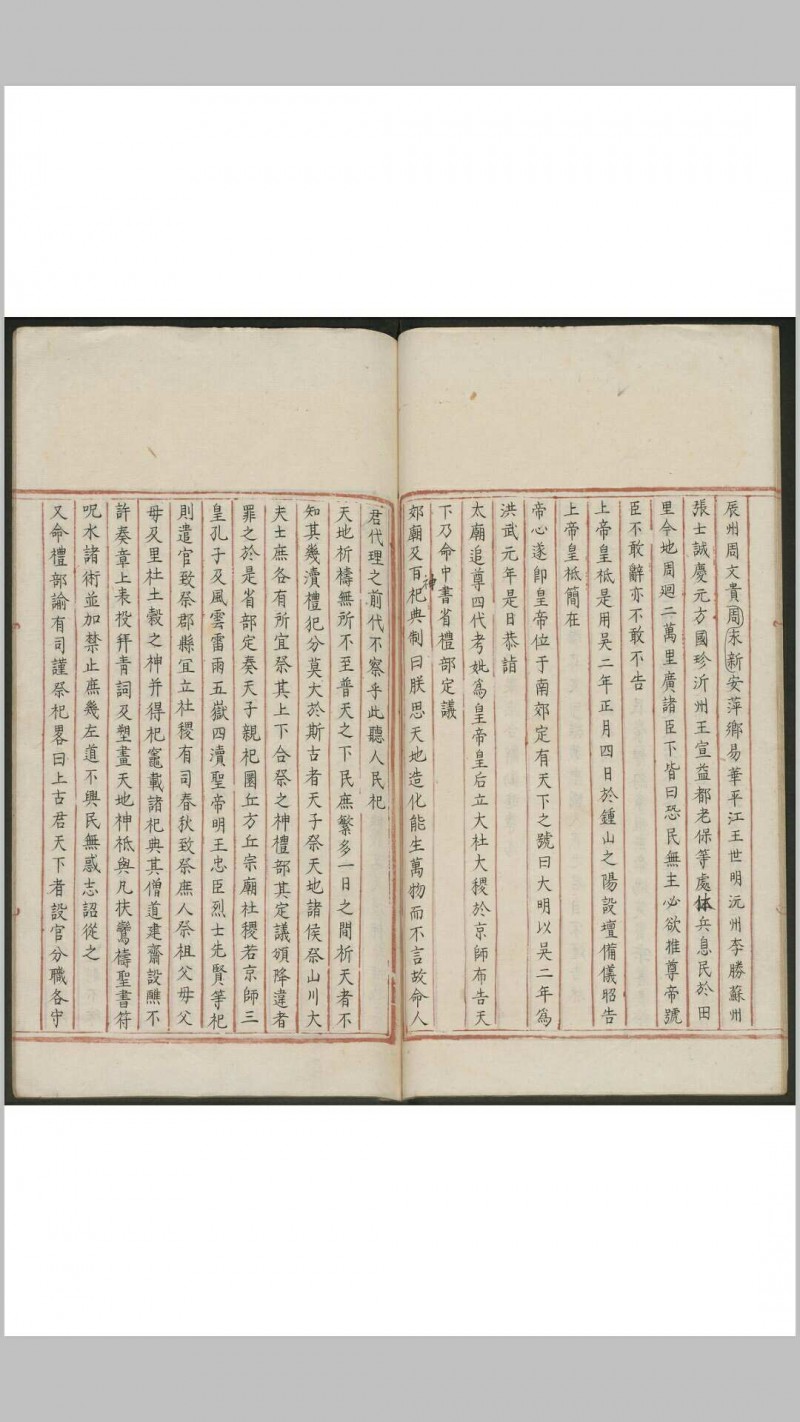 辰州周文貴周永新安萍鄉易華平江王世明沅州李勝蘇州
張士誠慶元方國珍沂州王宣益都老保等處体兵息民於田
里今地周廻二萬里廣諸臣下皆曰恐民無主必欲推尊帝號
臣不敢辭亦不敢不告
上帝皇祗是用吳二年正月四日於鍾山之陽設壇備儀昭告
上帝皇祗簡在
帝心遂即皇帝位于南郊定有天下之號曰大明以吳二年為
洪武元年是日恭詣
太廟追尊四代考妣為皇帝皇后立大社大稷於京師布告天
下乃命中書省禮部定議
郊廟及百神祀典制曰朕思天地造化能生萬物而不言故命人
君代理之前代不察乎此聽人民祀
天地祈禱無所不至普天之下民庶繁多一日之間祈天者不
知其幾瀆禮犯分莫大於斯古者天子祭天地諸侯祭山川大
夫士庶各有所宜祭其上下合祭之神禮部其定議頒降違者
罪之於是省部定奏天子親祀圜丘方丘宗廟社稷若京師三
皇孔子及風雲雷雨五嶽四瀆聖帝明王忠臣烈士先賢等祀
則遣官致祭郡縣宜立社稷有司春秋致祭庶人祭祖父母父
母及里社土穀之神并得祀竈載諸祀典其僧道建齋設醮不
許奏章上表投拜青詞及塑畫天地神祗與凡扶鸞禱聖書符
呪水諸術並加禁止庶幾左道不興民無惑志詔從之
又命禮部諭有司謹祭祀畧曰上古君天下者設官分職各守